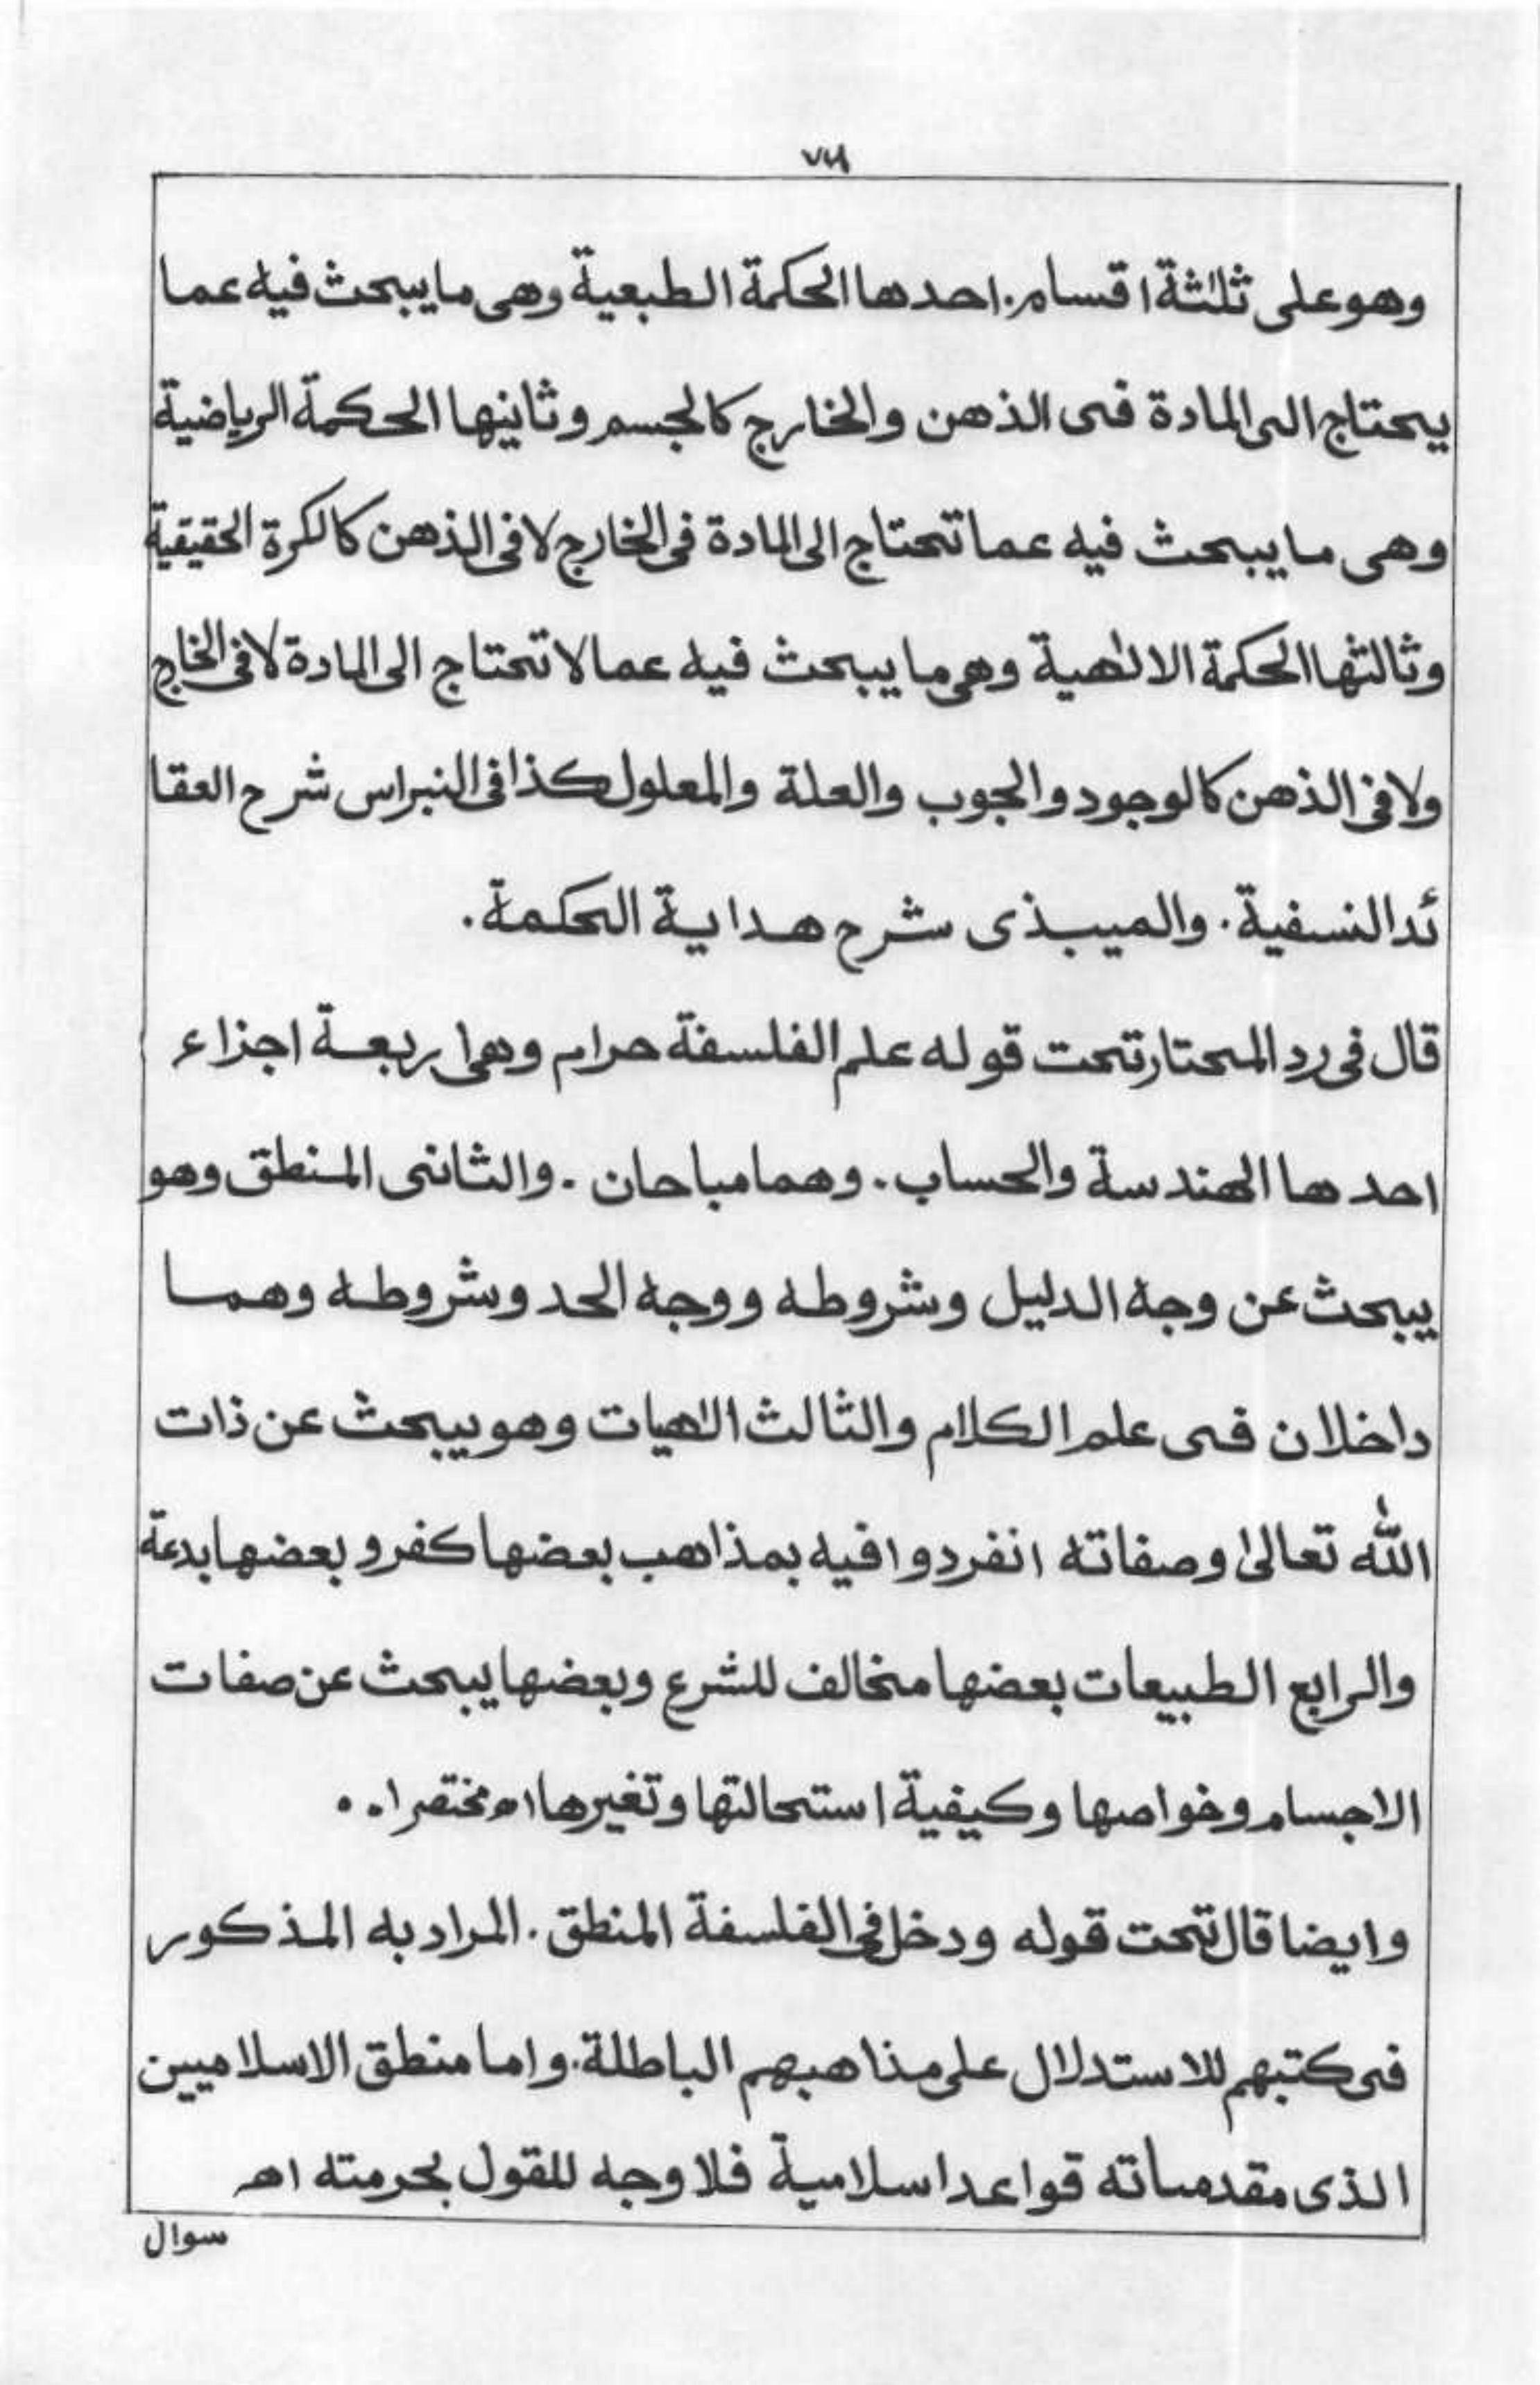 وهو على ثلثة اقسام. احدها الحكمة الطبعية وهى ما يبحث فيه عما
يحتاج الى المادة فى الذهن والخارج كالجسم وثانيها الحكمة الرياضية
وهى ما يبحث فيه عما تحتاج الى المادة فى الخارج لا فى الذهن كالكرة الحقيقية
وثالثها الحكمة الالٰهية وهى ما يبحث فيه عما لا تحتاج الى المادة لا فى الخارج
ولا فى الذهن كالوجود والجوب والعلة والمعلول كذا فى النبراس شرح العقا
ئد النسفية. والميبذى شرح هداية الحكمة.
قال فى رد المحتار تحت قوله علم الفلسفة حرام وهى اربعة اجزاء
احدها الهندسة والحساب. وهما مباحان. والثانى المنطق وهو
يبحث عن وجه الدليل وشروطه ووجه الحد وشروطه وهما
داخلان فى علم الكلام والثالث الٰهيات وهو يبحث عن ذات
الله تعالىٰ وصفاته انفردوا فيه بمذاهب بعضها كفر و بعضها بدعة
والرابع الطبيعات بعضها مخالف للشرع وبعضها يبحث عن صفات
الاجسام وخواصها وكيفية استحالتها وتغيرها اه مختصرا..
وايضا قال تحت قوله ودخل فى الفلسفة المنطق. المراد به المذكور
فى كتبهم للاستدلال على مذاهبهم الباطلة. واما منطق الاسلاميين
الذى مقدماته قواعد اسلامية فلا وجه للقول بحرمته اهـ
سوال